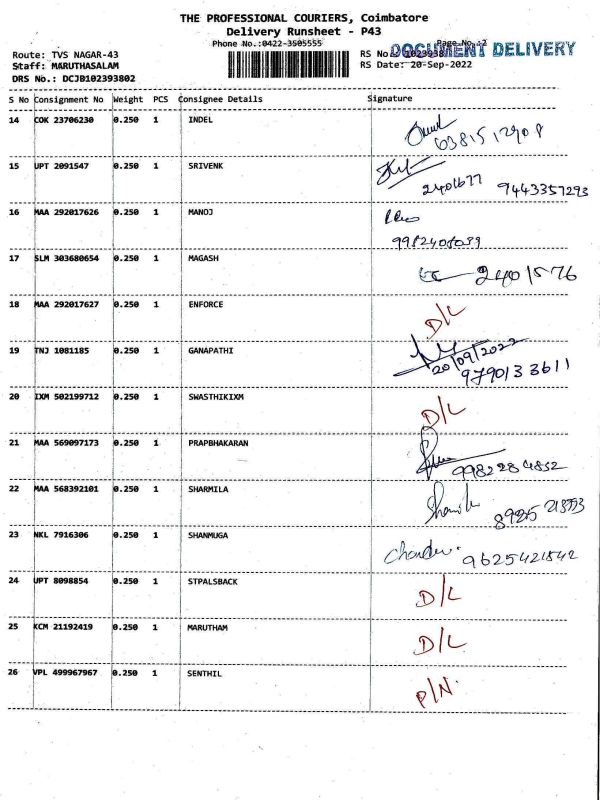 THE PROFESSIONAL COURIERS, Coimbatore
Delivery Runsheet - P43
Phone No.:0422-3505555
Page No.:2
Route: TVS NAGAR-43
RS No.
DOCUMENT DELIVERY
Staff: MARUTHASALAM
RS Date: 20-Sep-2022
DRS No.: DCJB102393802
S No Consignment No Weight PCS Consignee Details Signature
14 COK 23706230 0.250 1 INDEL
15 UPT 2091547 0.250 1 SRIVENK
2401677 9443357293
16 MAA 292017626 0.250 1 MANOJ
17 SLM 303680654 0.250 1 MAGASH
2401576
18 MAA 292017627 0.250 1 ENFORCE
D/L
19 TNJ 1081185 0.250 1 GANAPATHI
20/09/2022
9790133611
20 IXM 502199712 0.250 1 SWASTHIKIXM
D/L
21 MAA 569097173 0.250 1 PRAPBHAKARAN
9982284832
22 MAA 568392101 0.250 1 SHARMILA
23 NKL 7916306 0.250 1 SHANMUGA
9625421542
24 UPT 8098854 0.250 1 STPALSBACK
D/L
25 KCM 21192419 0.250 1 MARUTHAM
D/L
26 VPL 499967967 0.250 1 SENTHIL
P/N.